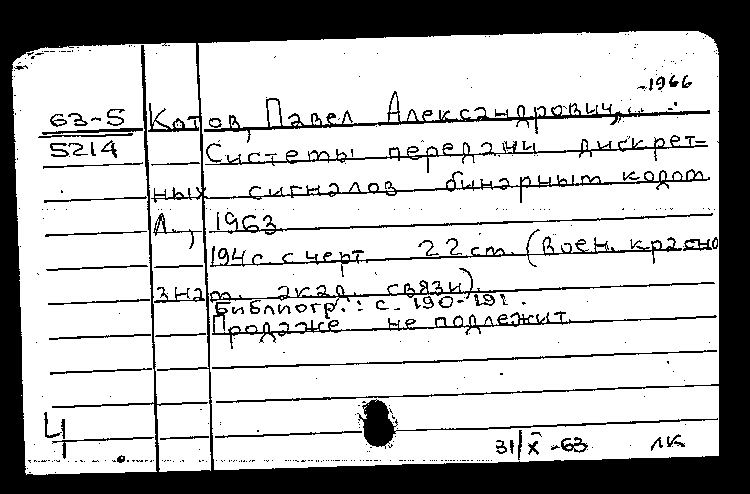 -1966
63-5 Котов, Павел Александрович,
5214 Системы передачи дискрет=
ных сигналов бинарным кодом
Л., 1963
194 с. с черт. 22 см. (Воен. красно
знам. акад. связи).
Библиогр.: с. 190-191.
Продаже не подлежит.
Ч
31/X-63 ЛК